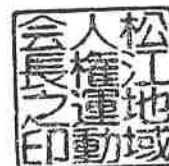 松江地域
人権運動
会長之印